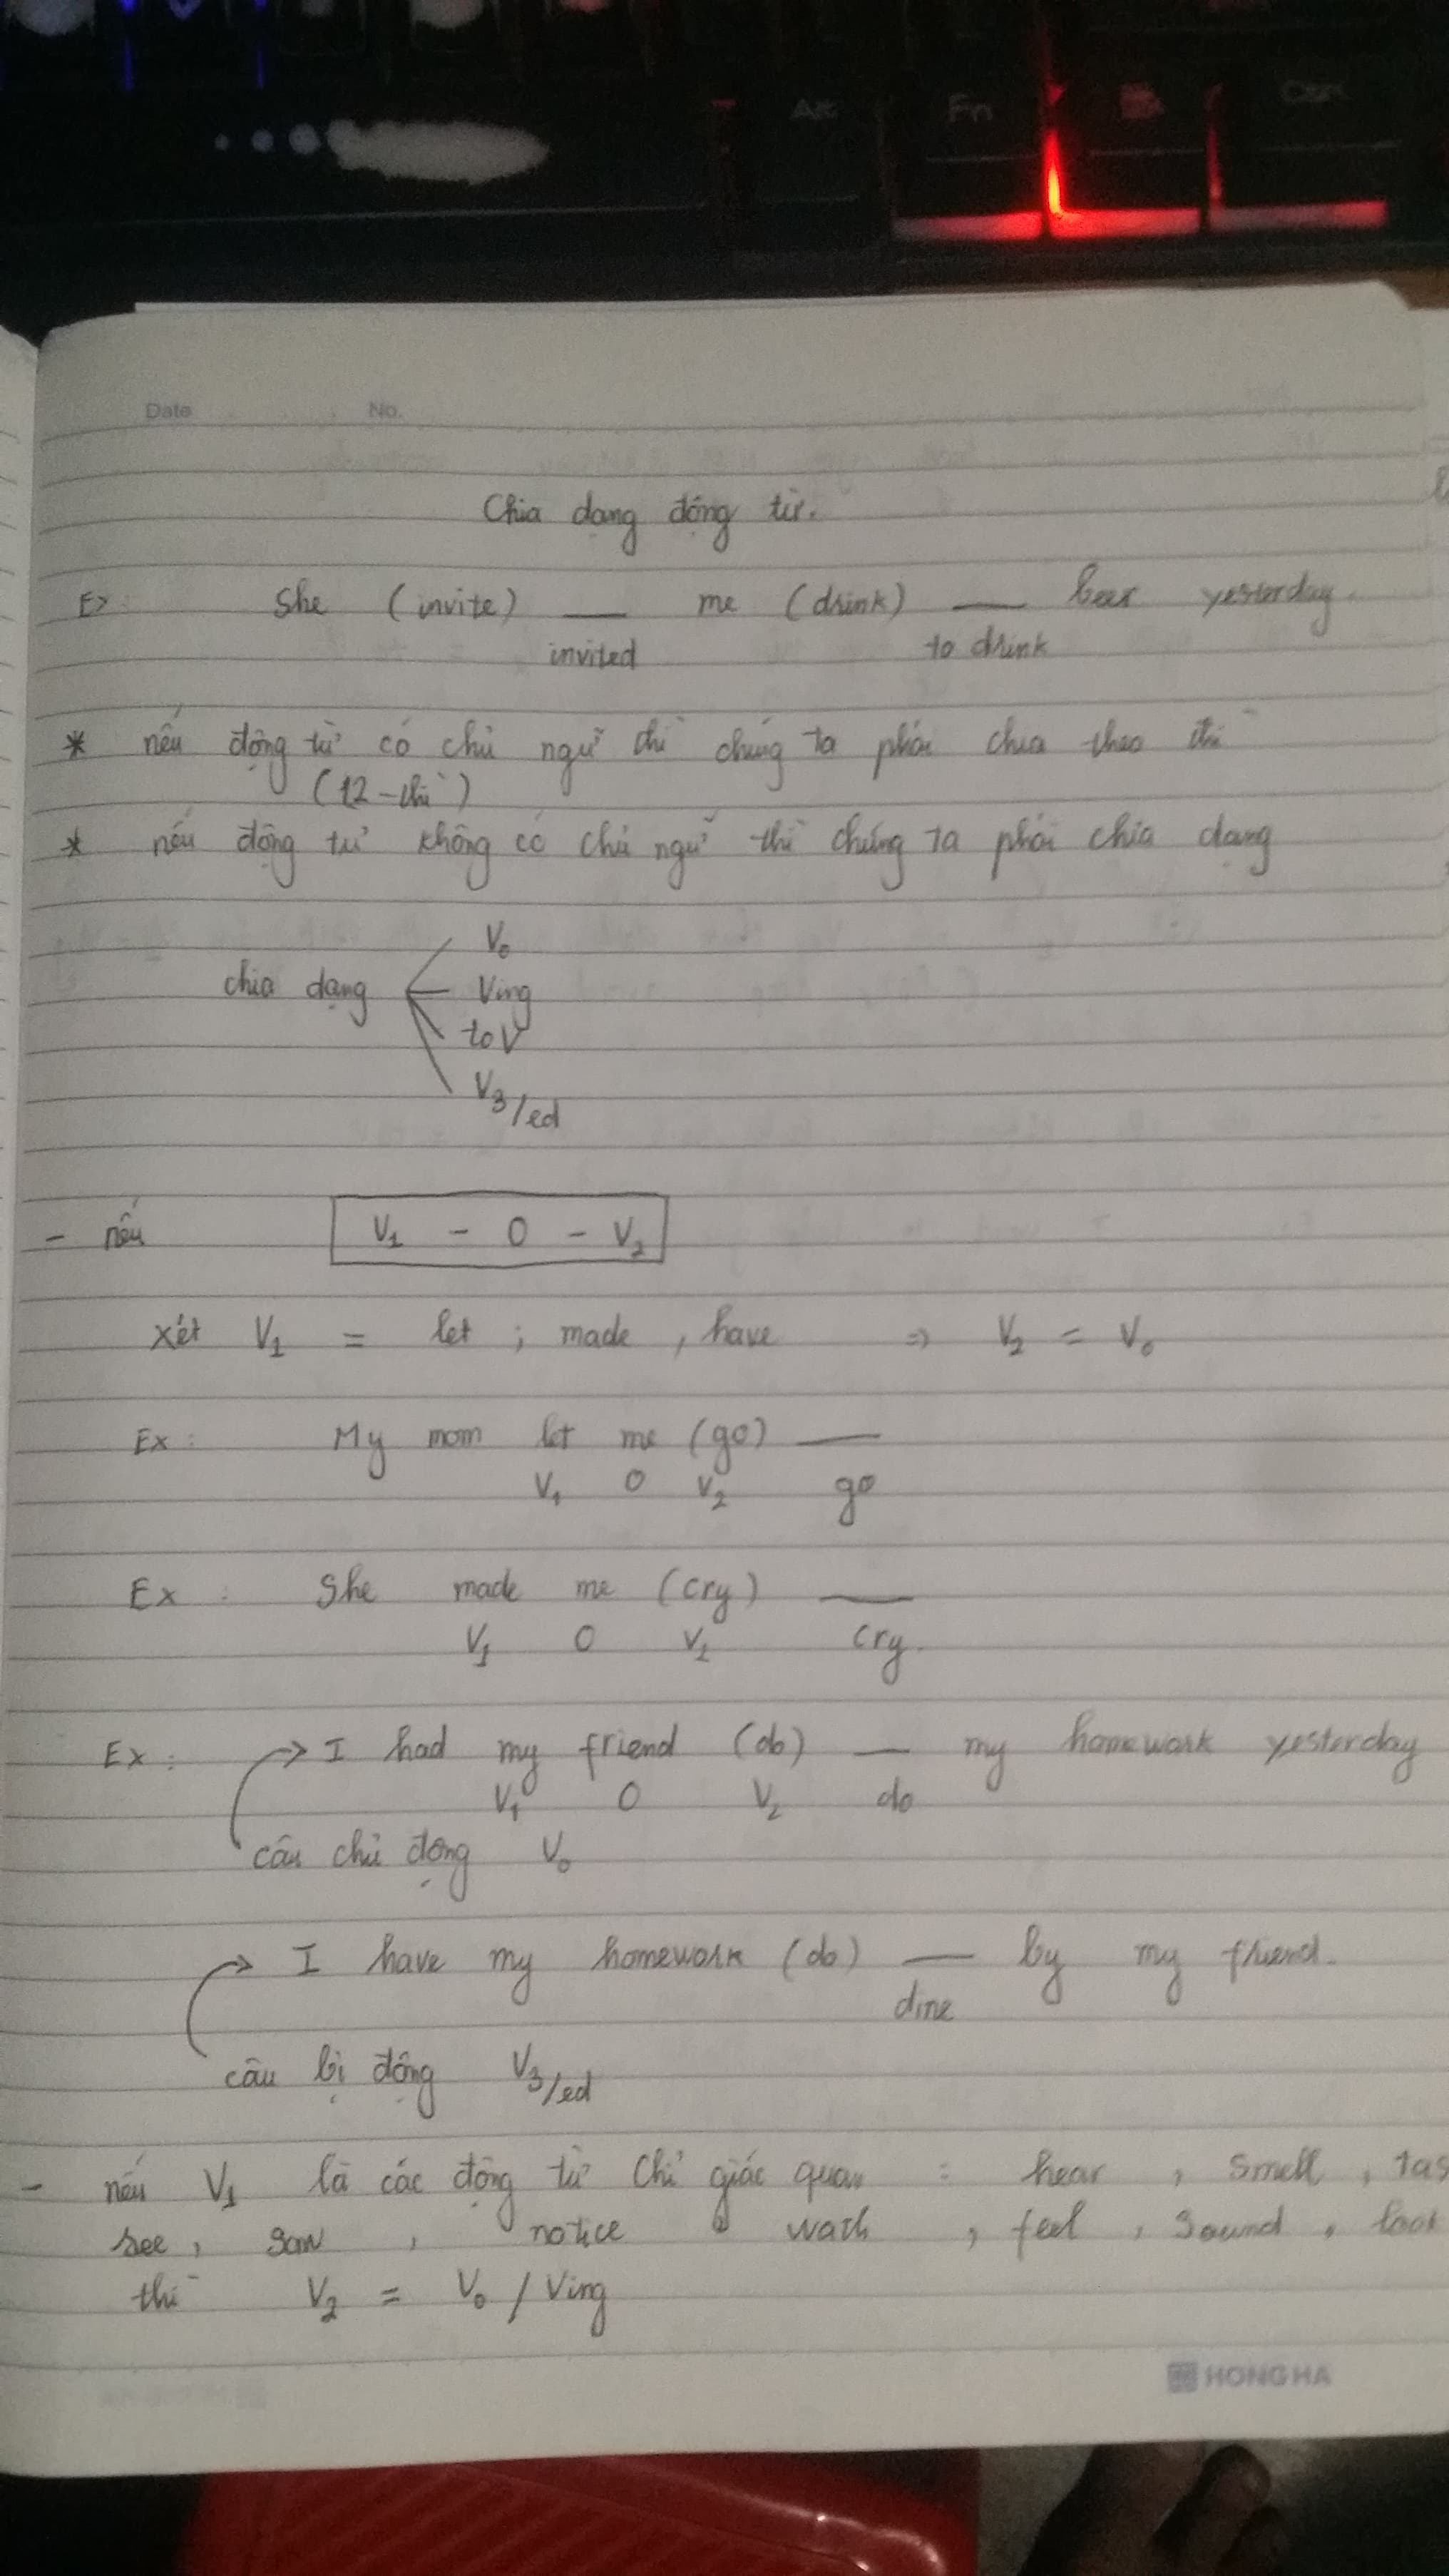 Alt Fn Ctrl
Date No.
Chia dạng động từ.
Ex: She (invite) ___ me (drink) ___ beer yesterday.
invited to drink
* nếu động từ có chủ ngữ thì chúng ta phải chia theo thì
(12 - thì)
* nếu động từ không có chủ ngữ thì chúng ta phải chia dạng
V₀
chia dạng Ving
to V
V3/ed
- nếu V₁ - O - V₂
xét V₁ = let ; made , have => V₂ = V₀
Ex : My mom let me (go) ___
V₁ O V₂ go
Ex : She made me (cry) ___
V₁ O V₂ cry.
Ex : I had my friend (do) ___ my homework yesterday
V₁ O V₂ do
câu chủ động V₀
I have my homework (do) ___ by my friend.
dine
câu bị động V3/ed
- nếu V₁ là các động từ chỉ giác quan : hear , smell , tas
see , saw , notice wath , feel , sound , look
thì V₂ = V₀ / Ving
HONG HA